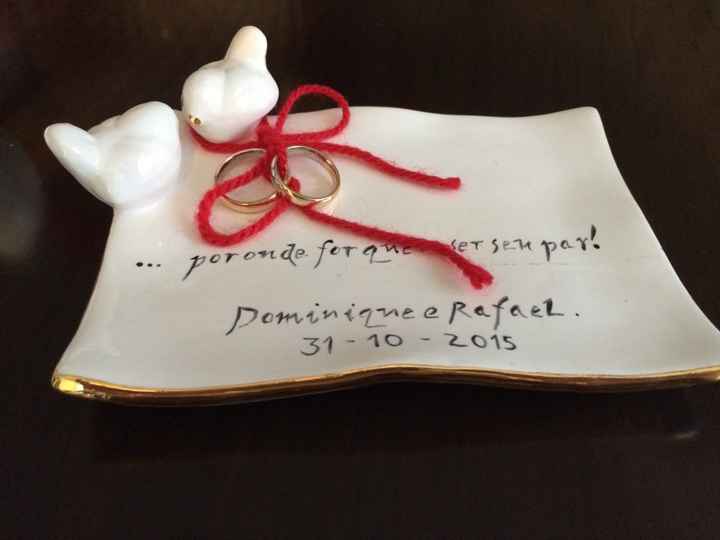 ... por onde for que ser seu par!
Dominique e Rafael.
31-10-2015